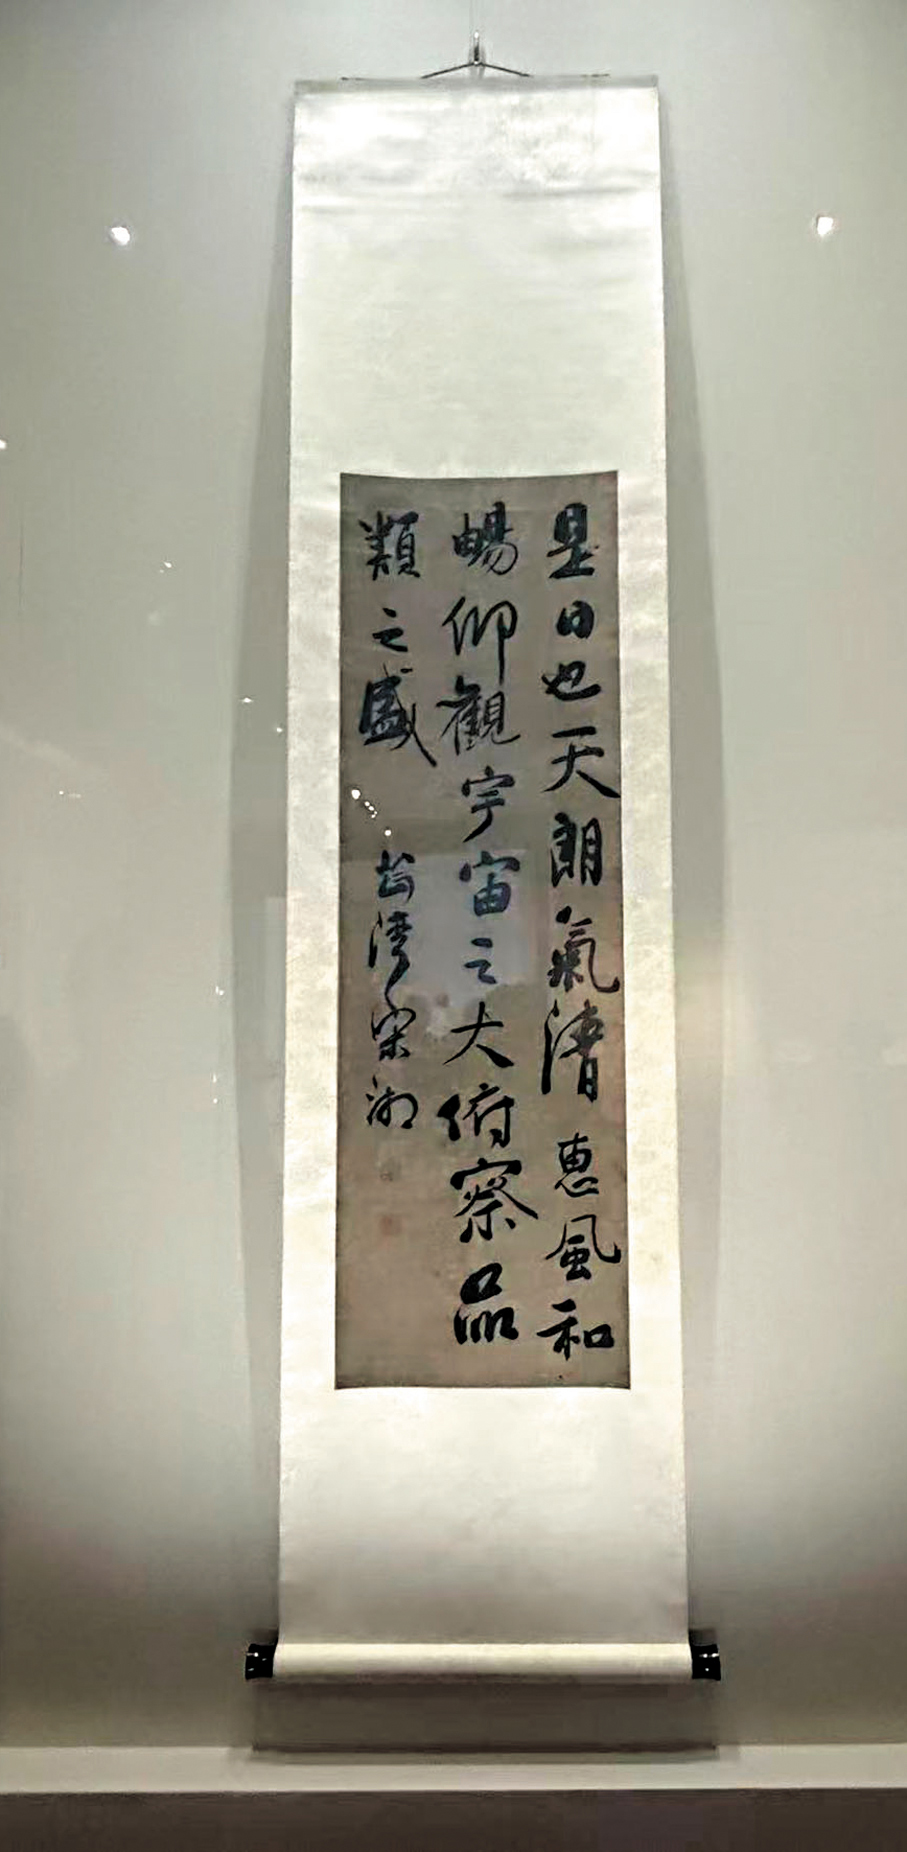 是日也天朗氣清惠風和
暢仰觀宇宙之大俯察品
類之盛
芷灣宋湘